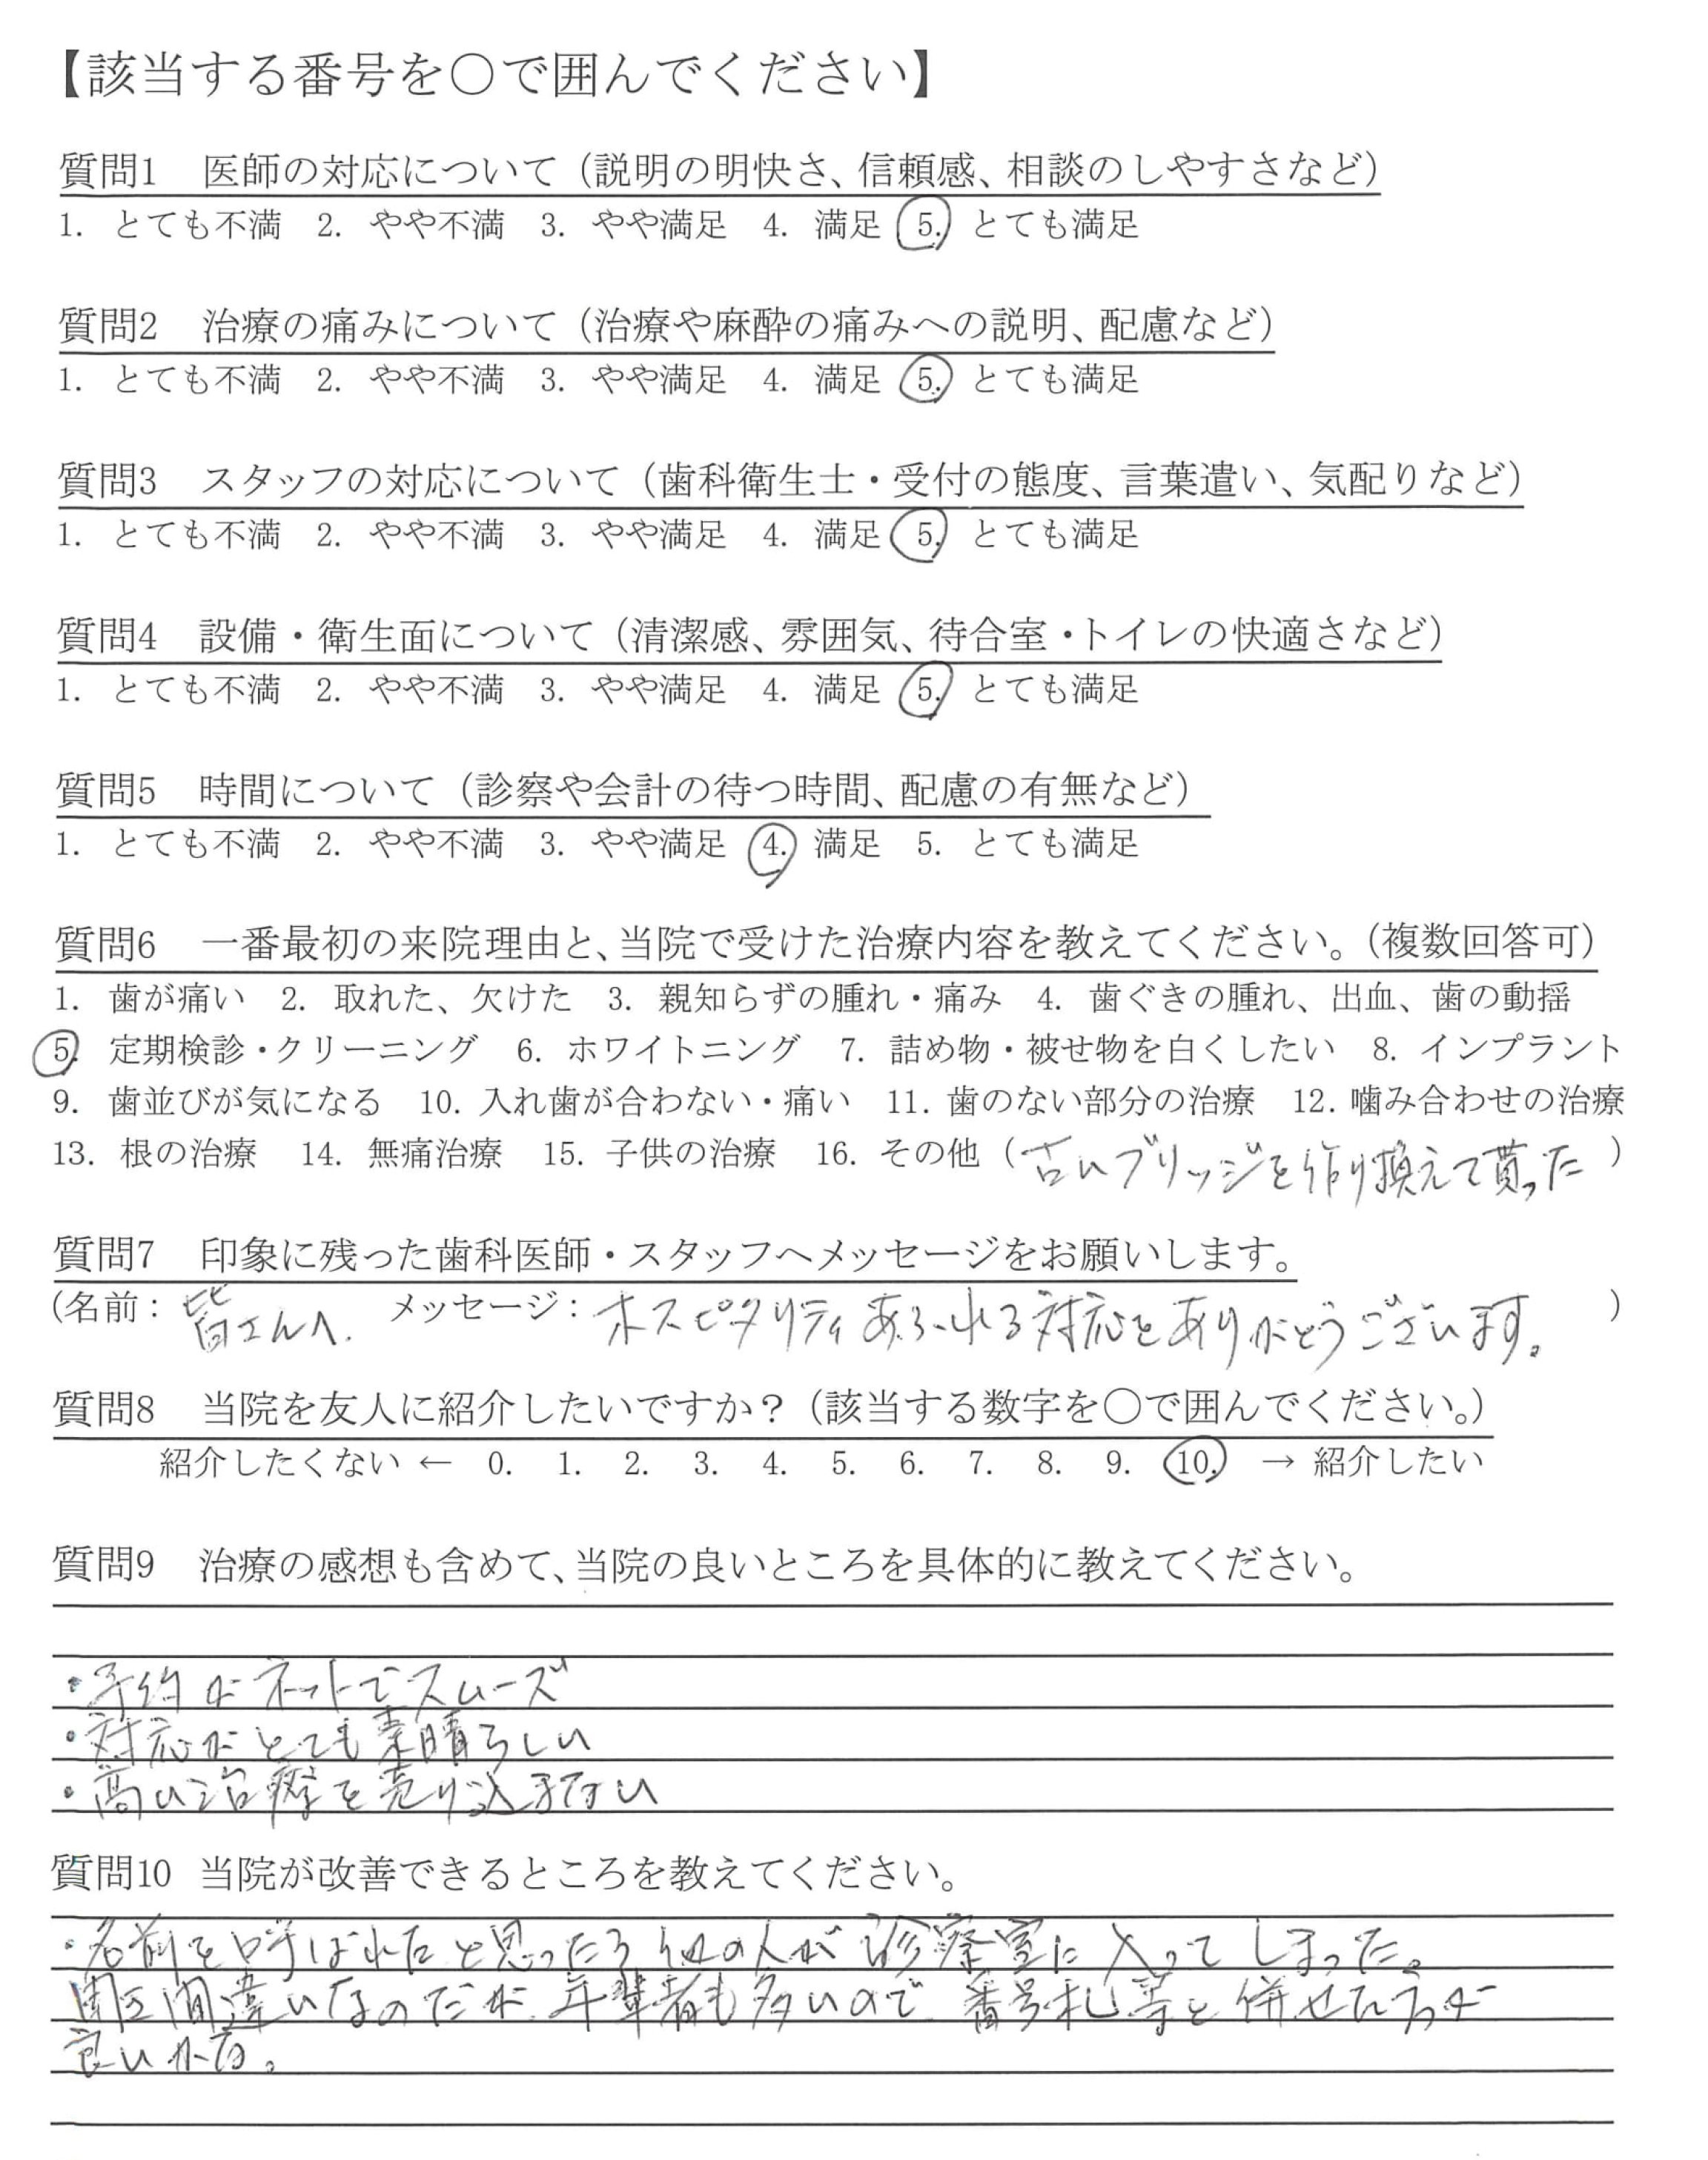 【該当する番号を○で囲んでください】
質問1 医師の対応について（説明の明快さ、信頼感、相談のしやすさなど）
1. とても不満 2. やや不満 3. やや満足 4. 満足 5. とても満足
質問2 治療の痛みについて（治療や麻酔の痛みへの説明、配慮など）
1. とても不満 2. やや不満 3. やや満足 4. 満足 5. とても満足
質問3 スタッフの対応について（歯科衛生士・受付の態度、言葉遣い、気配りなど）
1. とても不満 2. やや不満 3. やや満足 4. 満足 5. とても満足
質問4 設備・衛生面について（清潔感、雰囲気、待合室・トイレの快適さなど）
1. とても不満 2. やや不満 3. やや満足 4. 満足 5. とても満足
質問5 時間について（診察や会計の待つ時間、配慮の有無など）
1. とても不満 2. やや不満 3. やや満足 4. 満足 5. とても満足
質問6 一番最初の来院理由と、当院で受けた治療内容を教えてください。（複数回答可）
1. 歯が痛い 2. 取れた、欠けた 3. 親知らずの腫れ・痛み 4. 歯ぐきの腫れ、出血、歯の動揺
5. 定期検診・クリーニング 6. ホワイトニング 7. 詰め物・被せ物を白くしたい 8. インプラント
9. 歯並びが気になる 10. 入れ歯が合わない・痛い 11. 歯のない部分の治療 12. 噛み合わせの治療
13. 根の治療 14. 無痛治療 15. 子供の治療 16. その他（古いブリッジを作り換えて貰った）
質問7 印象に残った歯科医師・スタッフへメッセージをお願いします。
（名前：皆さんへ. メッセージ：ホスピタリティあふれる対応をありがとうございます。）
質問8 当院を友人に紹介したいですか？（該当する数字を○で囲んでください。）
紹介したくない ← 0. 1. 2. 3. 4. 5. 6. 7. 8. 9. 10. → 紹介したい
質問9 治療の感想も含めて、当院の良いところを具体的に教えてください。
・予約がネットでスムーズ
・対応がとても素晴らしい
・高い治療を売り込まない
質問10 当院が改善できるところを教えてください。
・名前を呼ばれたと思ったら他の人が診察室に入ってしまった。
聞き間違いなのだが、年輩者も多いので番号札等と併せた方が
良いかな。